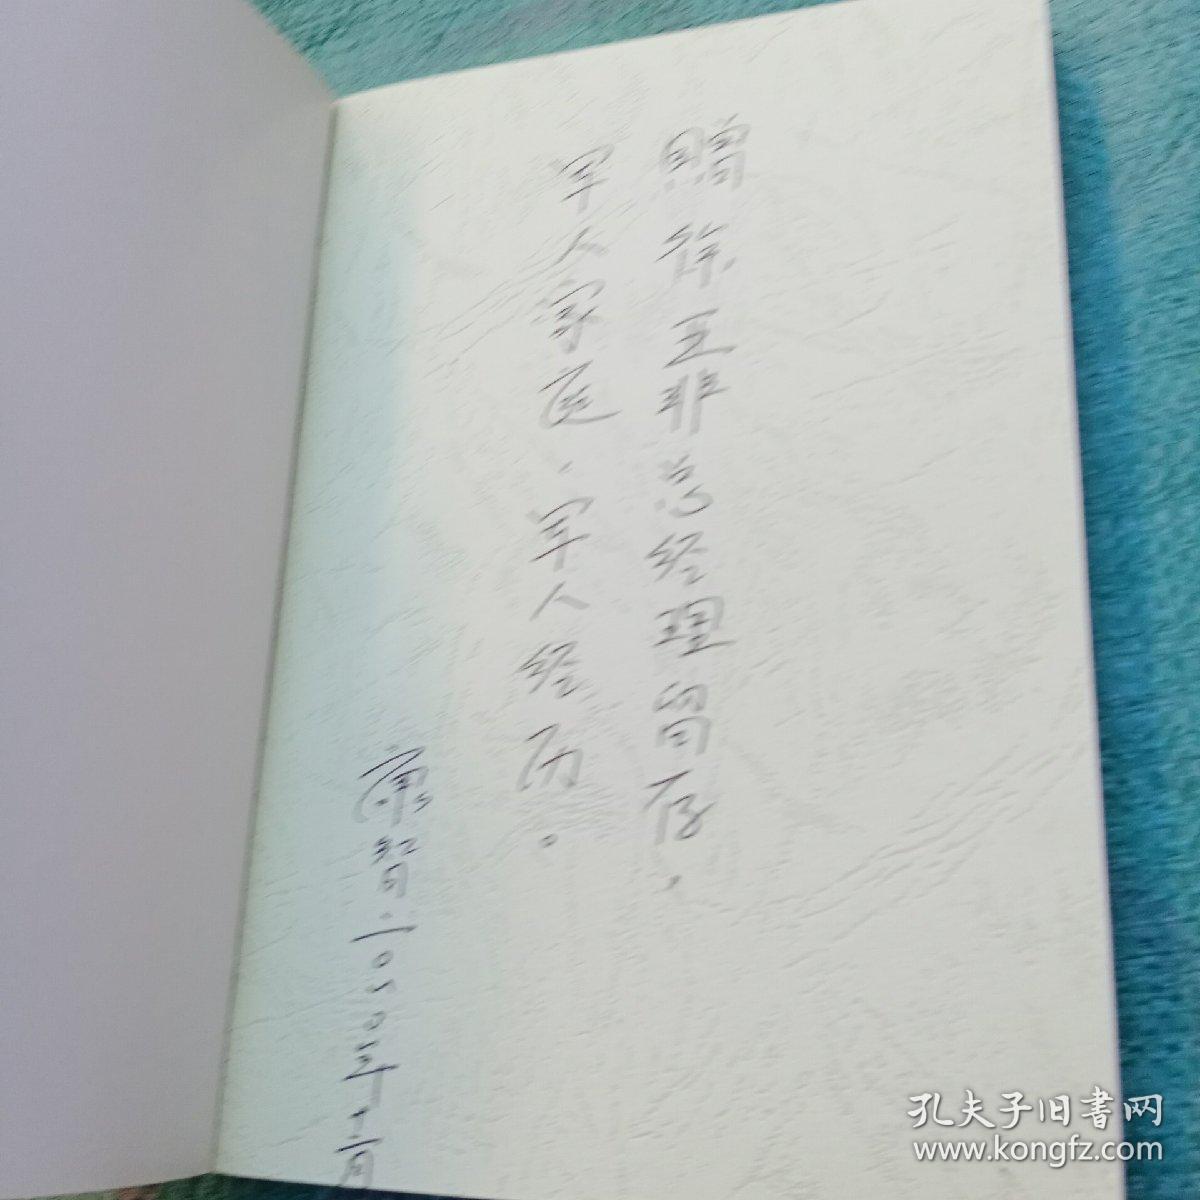 赠徐亚非总经理留存，
军人家庭、军人经历。
康智二〇
年十二月
孔夫子旧書网
www.kongfz.com